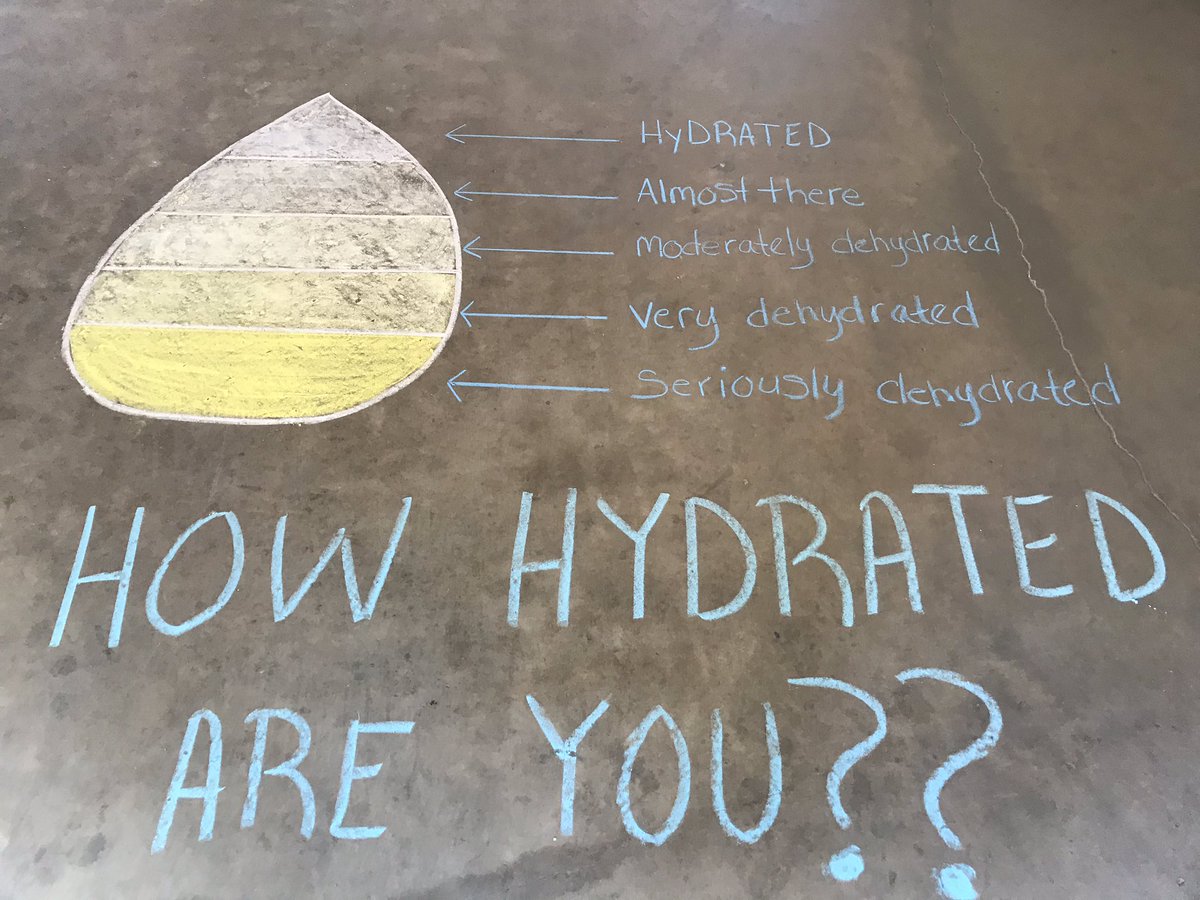 HyDRATED
Almost there
moderately dehydrated
Very dehydrated
Seriously dehydrated
HOW HYDRATED
ARE YOU??